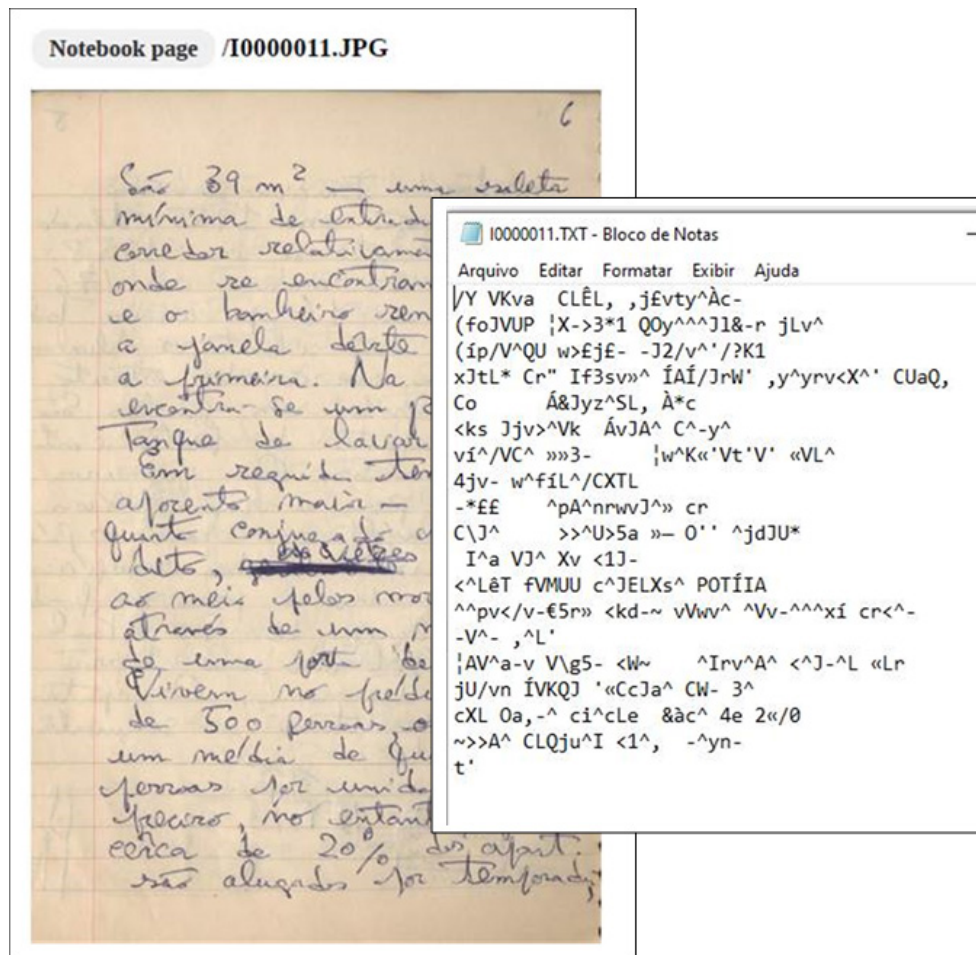 Notebook page /I0000011.JPG
6
São 39 m² — uma saleta
mínima de entrada
corredor relativamen
onde se encontram
e o banheiro
a janela deste
a primeira. Na
encontra-se um
Tanque de lavar
Em seguida
aposento maior —
quarto
as vezes
ao meio pelos
através de um
de uma porta
Vivem no prédi
de 500 pessoas,
um média de
pessoas por unida
preciso, no entant
cêrca de 20% dos apart.
são alugados por temporada,
I0000011.TXT - Bloco de Notas
Arquivo Editar Formatar Exibir Ajuda
/Y VKva CLÊL, ,j£vty^Àc-
(foJVUP ¦X->3*1 QOy^^^Jl&-r jLv^
(íp/V^QU w>£j£- -J2/v^'/?K1
xJtL* Cr" If3sv»^ ÍAÍ/JrW' ,y^yrv<X^' CUaQ,
Co Á&Jyz^SL, À*c
<ks Jjv>^Vk ÁvJA^ C^-y^
ví^/VC^ »»3- ¦w^K«'Vt'V' «VL^
4jv- w^fíL^/CXTL
-*££ ^pA^nrwvJ^» cr
C\J^ >>^U>5a »— O'' ^jdJU*
I^a VJ^ Xv <1J-
<^LêT fVMUU c^JELXs^ POTÍIA
^^pv</v-€5r» <kd-~ vVwv^ ^Vv-^^^xí cr<^-
-V^- ,^L'
¦AV^a-v V\g5- <W~ ^Irv^A^ <^J-^L «Lr
jU/vn ÍVKQJ '«CcJa^ CW- 3^
cXL Oa,-^ ci^cLe &àc^ 4e 2«/0
~>>A^ CLQju^I <1^, -^yn-
t'